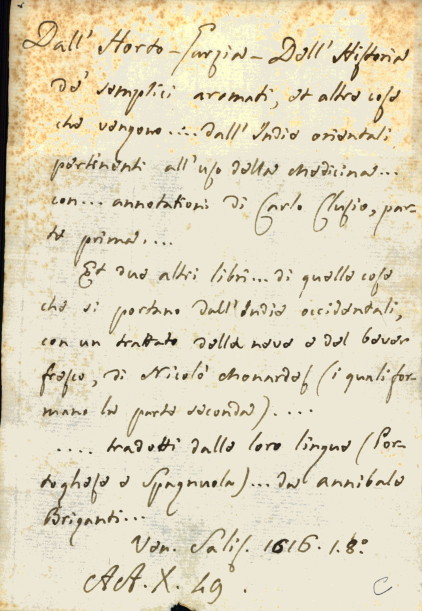 Dall' Horto - Garzia - Dell' Historia
de' semplici aromati, et altre cose
che vengono.... dall' Indie orientali
pertinenti all' uso della Medicina...
con... annotationi di Carlo Clusio, par-
te prima....
Et due altri libri... di quelle cose
che si portano dall' Indie occidentali,
con un trattato della neve e del bever
fresco, di Nicolò Monardes (i quali for-
mano la parte seconda)....
.... tradotti dalle loro lingue (Por-
toghese e Spagnuola)... da Annibale
Briganti...
Ven. Salis. 1616. 1. 8:º
AA. X. 49º
C